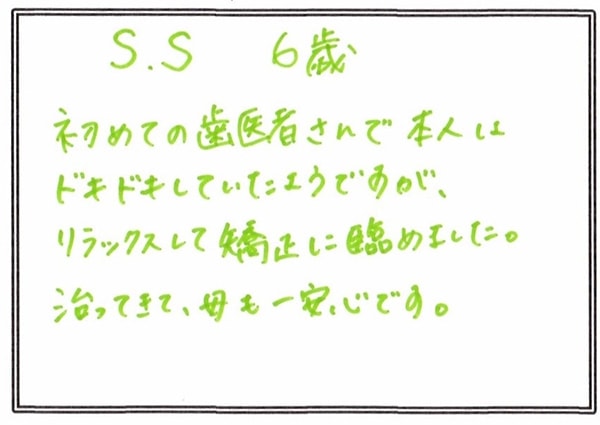 S.S 6歳
初めての歯医者さんで本人は
ドキドキしていたようですが、
リラックスして矯正に臨めました。
治ってきて、母も一安心です。